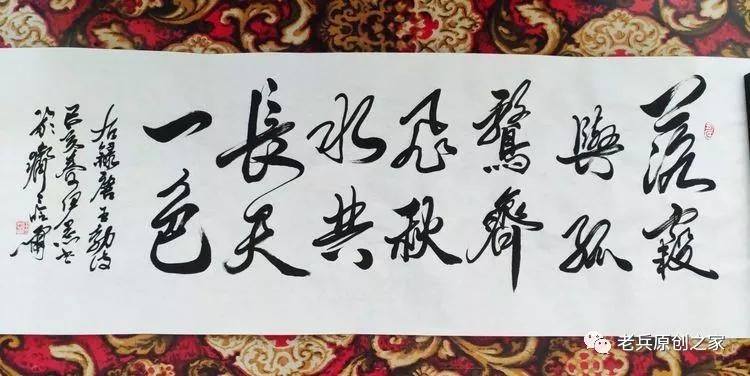 落霞
與孤
鶩齊
飛秋
水共
長天
一色
右錄唐王勃
己亥春
於濟
老兵原创之家